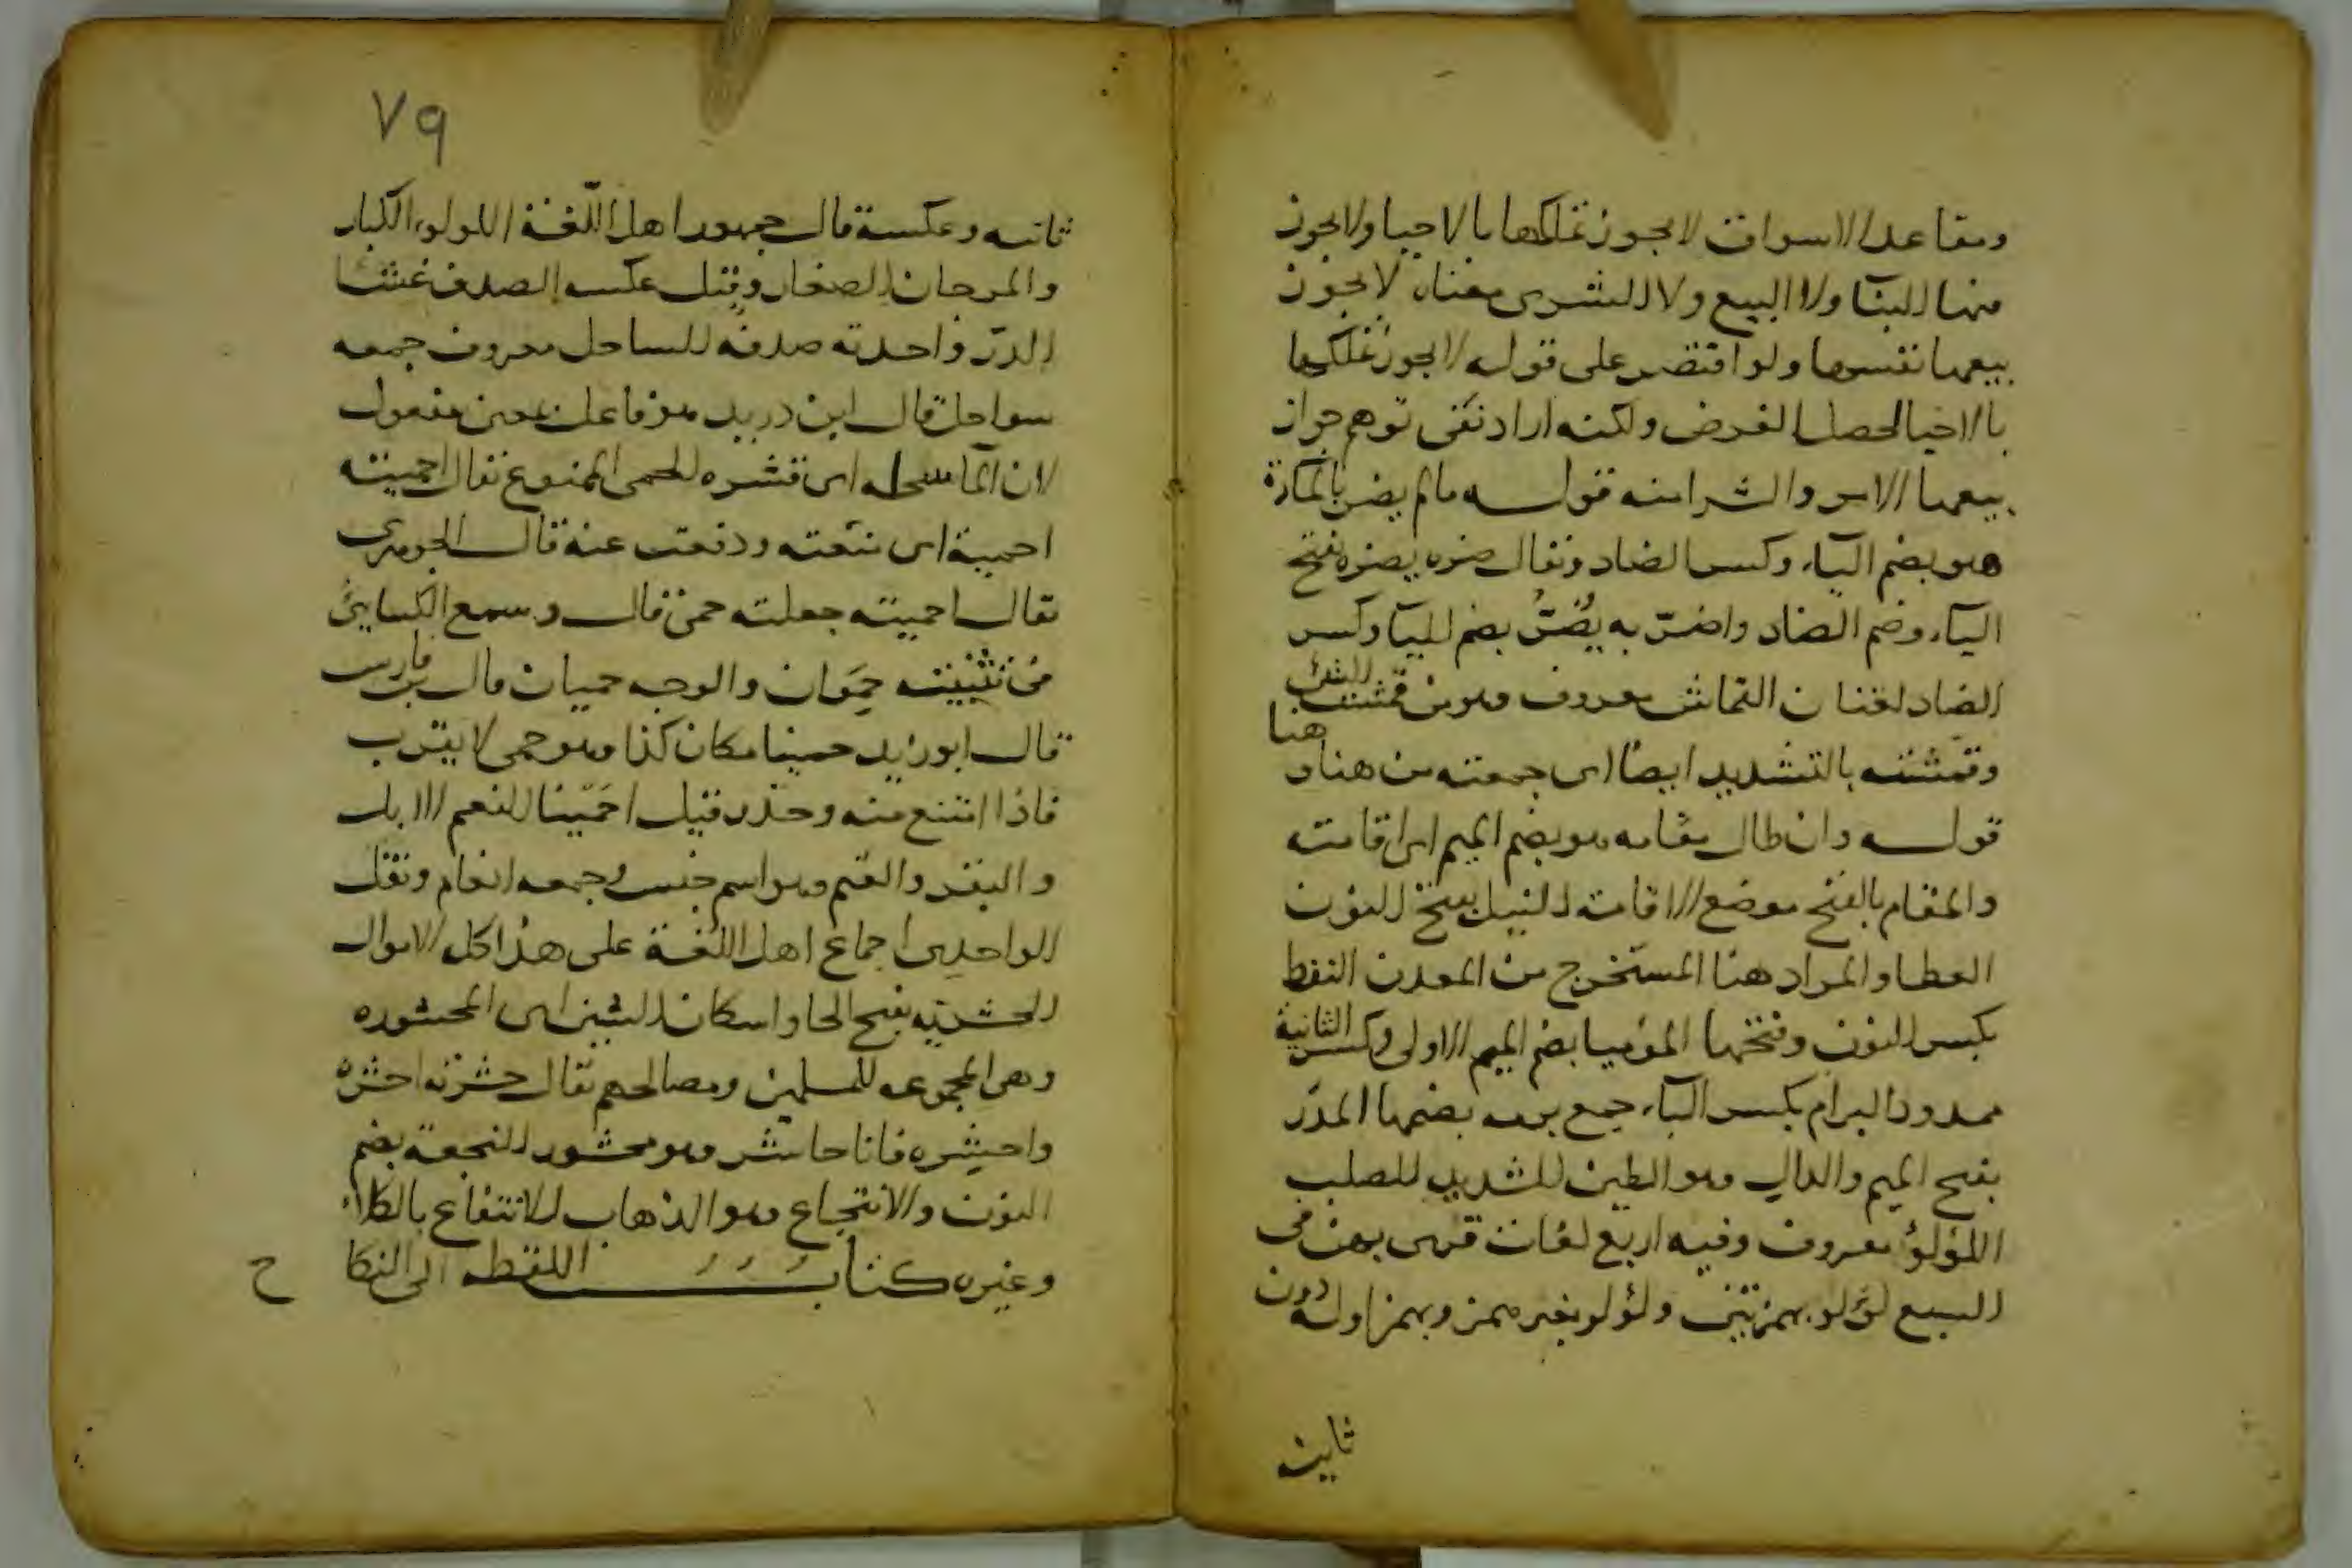 ومقاعد الاسواق لا يجوز تملكها بالاحيا ولا يجوز
فيها البنآ ولا البيع ولا الشرى معناه لا يجوز
بيعها نفسها ولو اقتصر على قوله لا يجوز تملكها
بالاحيا لحصل الغرض ولكنه اراد نفى توهم جواز
بيعها والشرا منه قوله مالم يضر بالمارة
هو بضم اليآء وكسر الضاد ويقال ضره يضره بفتح
اليآء وضم الضاد واضرّ به يُضِرُّ بضم اليآ وكسر
الضاد لغتان القماش معروف وهو من قمشت الشئ
وقمشته بالتشديد ايضا اى جمعته من هنا و هنا
قوله وان طال مقامه هو بضم الميم اى اقامته
والمقام بالفتح موضع الاقامة النيل بفتح النون
العطا والمراد هنا المستخرج من المعدن النفط
بكسر النون وفتحها الموميا بضم الميم الاولى وكسر الثانية
ممدود البرام بكسر البآء جمع برمه بضمها المدَر
بفتح الميم والدال وهو الطين الشديد الصلب
اللؤلؤ معروف وفيه اربع لغات قرى بهن فى
السبع لؤلؤ بهمزتين ولؤلو بغير همز وبهمز اوله دون
ثانيه
٧٩
ثانيه وعكسه قال جمهور اهل اللّغة اللولوء الكبار
والمرجان الصغار وقيل عكسه الصدف غشا
الدرّ واحدته صدفه الساحل معروف جمعه
سواحل قال ابن دريد هو فاعل بمعنى مفعول
لان المآ سحله اى قشره الحمى الممنوع يقال احميته
احمية اى منعته ودفعت عنه قال الجوهرى
يقال احميته جعلته حمى قال وسمع الكسايى
فى تثنيته حِمَوان والوجه حميان قال بن فارس
قال ابو زيد حمينا مكان كذا وهو حمى لا يقرب
فاذا امتنع منه وحذر قيل احمَينا النعم الابل
والبقر والغنم وهو اسم جنس وجمعه انعام ونقل
الواحدى اجماع اهل اللغة على هذا كل الاموال
الحشريه بفتح الحا واسكان الشين اى المحشوره
وهى المجموعه للمسلمين ومصالحهم يقال حشرته احشره
واحشِره فانا حاشر وهو محشور النجعة بضم
النون والانتجاع وهو الذهاب للانتفاع بالكلاء
وغيره كتاب اللقطه الى النكاح